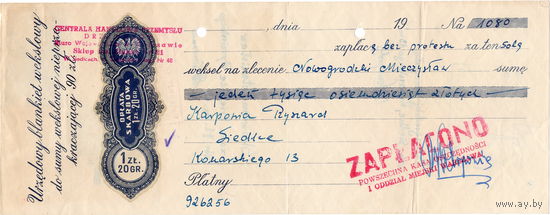 Urzędowy blankiet wekslowy
do sumy wekslowej nieprze-
kraczającej 90 zł.
CENTRALA
Siedlcach
Nr 48
OPŁATA
SKARBOWA
1 ZŁ. 20 GR.
1 ZŁ.
20 GR.
dnia 19 Na 1080
zapłacę bez protestu za ten solą
weksel na zlecenie Nowogrodzki Mieczysław sumę
jeden tysiąc osiemdziesiąt złotych
Karponia Ryszard
Siedlce
Konarskiego 13
Płatny
926256
ZAPŁACONO
POWSZECHNA KASA OSZCZĘDNOŚCI
I ODDZIAŁ MIEJSKI WARSZAWA
www.ay.by